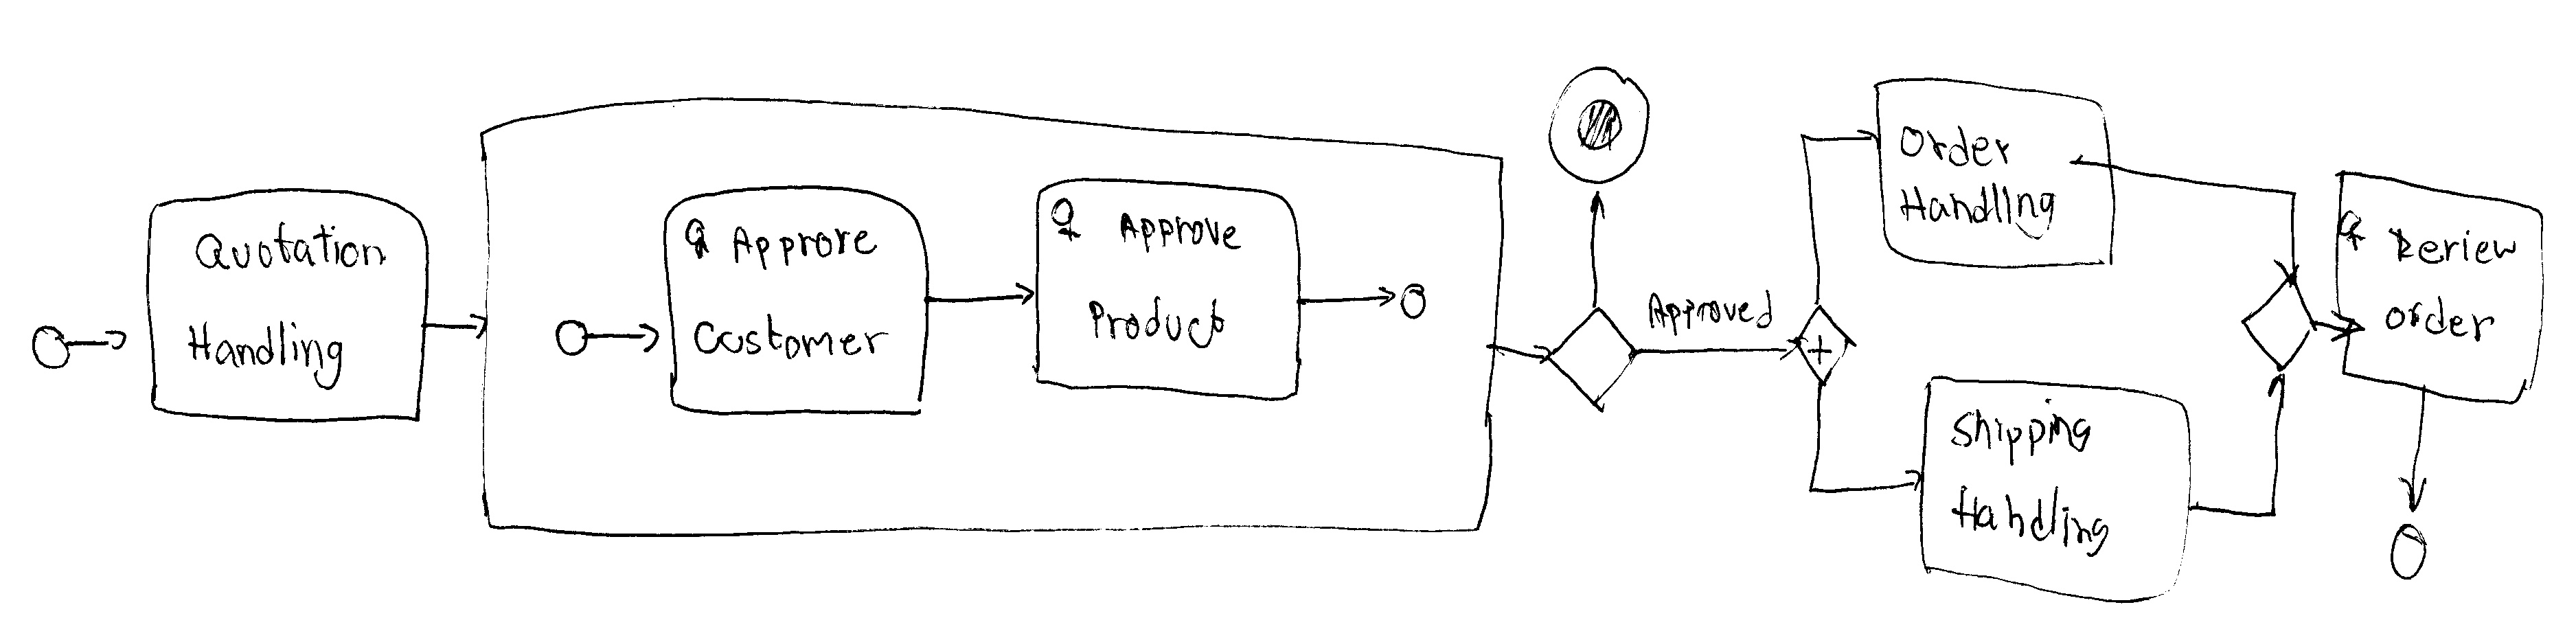 Quotation
Handling
Approve
Customer
Approve
Product
Approved
Order
Handling
Shipping
Handling
Review
order